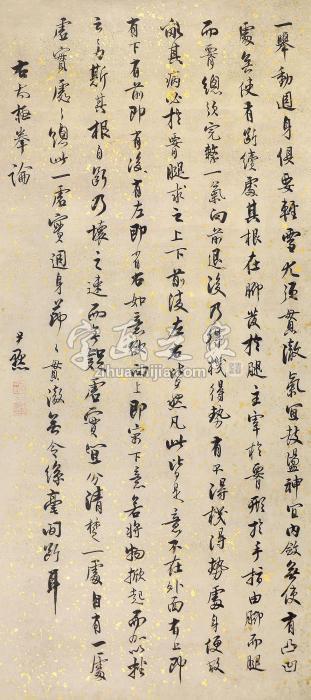 一舉動週身俱要輕靈尤須貫澈氣宜鼓盪神宜內斂無使有凸凹
處無使有斷續處其根在腳發於腿主宰於腰形於手指由腳而腿
而腰總須完整一氣向前退後乃得機得勢有不得機得勢處身便散
亂其病必於腰腿求之上下前後左右皆然凡此皆是意不在外面有上即
有下有前即有後有左即有右如意欲向上即寓下意若將物掀起而加以挫
之意斯其根自斷乃壞之速而無疑虛實宜分清楚一處自有一處
虛實處處總此一虛實週身節節貫澈無令絲毫間斷耳
右太極拳論
尹默
字画之家
zihuazhijia.com